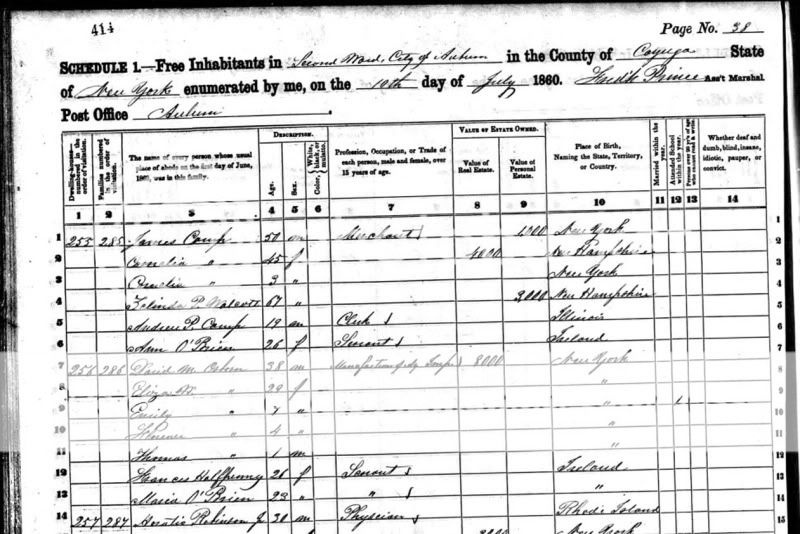 414
Page No. 38
SCHEDULE 1.—Free Inhabitants in Second Ward, City of Auburn in the County of Cayuga State
of New York enumerated by me, on the 19th day of July 1860. Prince Ass't Marshal
Post Office Auburn
Dwelling-houses— numbered in the order of visitation.
Families numbered in the order of visitation.
The name of every person whose usual place of abode on the first day of June, 1860, was in this family.
DESCRIPTION.
Age.
Sex.
Color, White, black, or mulatto.
Profession, Occupation, or Trade of each person, male and female, over 15 years of age.
VALUE OF ESTATE OWNED.
Value of Real Estate.
Value of Personal Estate.
Place of Birth, Naming the State, Territory, or Country.
Married within the year.
Attended School within the year.
Persons over 20 y'rs of age who cannot read & write.
Whether deaf and dumb, blind, insane, idiotic, pauper, or convict.
1 2 3 4 5 6 7 8 9 10 11 12 13 14
1 255 285 James Camp 50 m Merchant 1,000 New York 1
2 Cornelia " 45 f 4000 New Hampshire 2
3 " 3 " New York 3
4 P. 67 " 3,000 New Hampshire 4
5 Andrew P. Camp 19 m Clerk Illinois 5
6 Ann O'Brien 26 f Servant Ireland 6
7 256 286 David M. Osborn 38 m 8000 New York 7
8 Eliza " 29 f " 8
9 Emily " 7 " " 1 9
10 Florence " 4 " " 10
11 Thomas " 1 m " 11
12 Frances Halfpenny 26 f Servant Ireland 12
13 Maria O'Brien 23 " " " 13
14 257 287 Horatio Robinson Jr 30 m Physician Rhode Island 14
New York 15